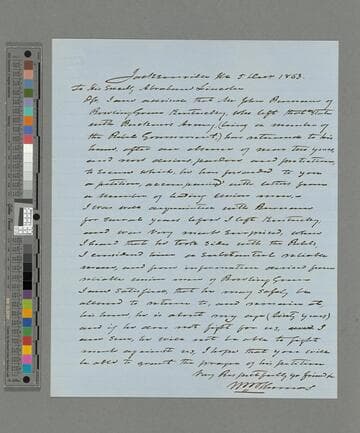 Jacksonville Ill 5 Decr 1863.
To his Excelly Abraham Lincoln
I am advised that Mr
Bowling Green Kentucky, who left that State
with Army (being a member of
the Rebel Government) has returned to his
home, after an absence of near two years,
and now desires pardon and protection,
to secure which, he has forwarded to you
a petition, accompanied with letters from
a number of leading Union men.
I was well acquainted with
for several years before I left Kentucky
and was very much surprised, when
I heard that he took sides with the Rebels,
I considered him a substantial reliable
man and from information derived from
reliable union men of Bowling Green
I am satisfied, that he may safely be
allowed to return to, and remain at
his home, he is about my age (sixty years)
and if he does not fight for us, I
am sure, he will not be able to fight
much against us, I hope that you will
be able to grant the prayer of his petition
Very Respectfully yr friend
Wm Thomas